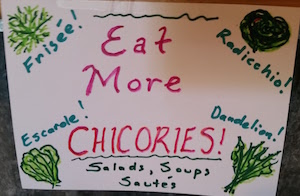 Frisée!
Eat
Radicchio!
More
Escarole!
Dandelion!
CHICORIES!
Salads, Soups
Sautés